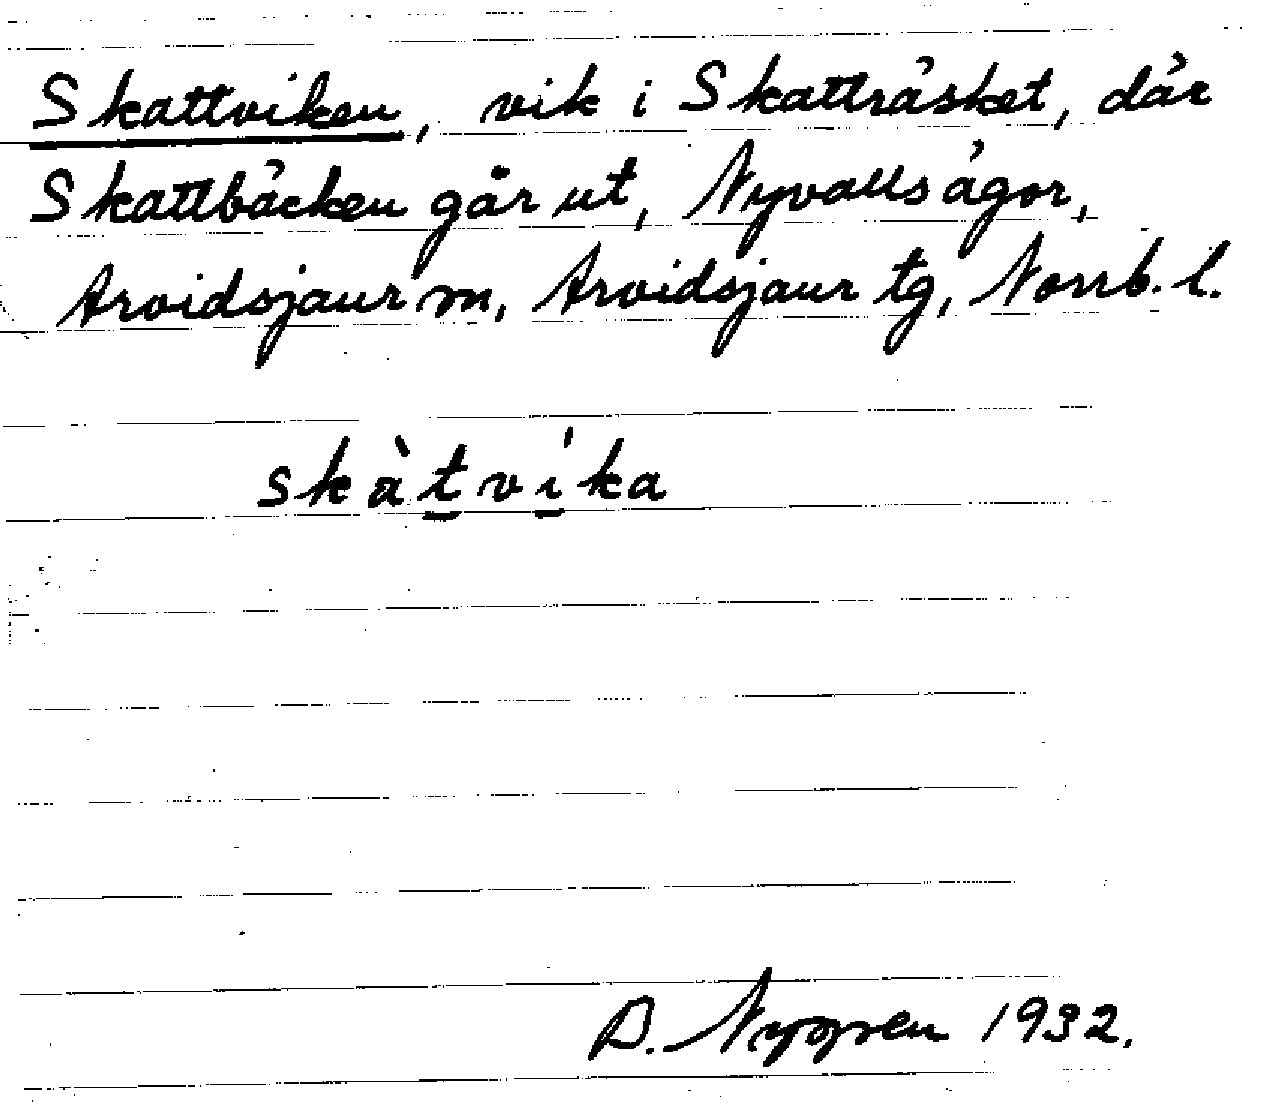 Skattviken, vik i Skatträsket, där
Skattbäcken går ut, Nyvallsägor,
Arvidsjaur m, Arvidsjaur tg, Norrb. l.
skàt̲ví̲ka
D. Nygren 1932.